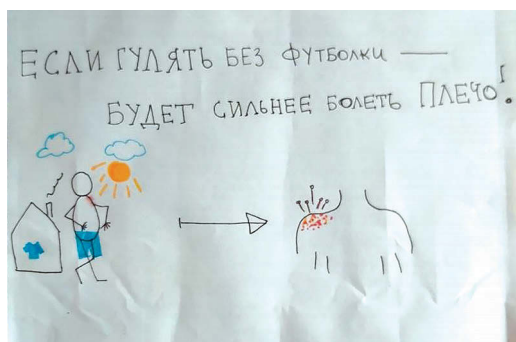 ЕСЛИ ГУЛЯТЬ БЕЗ ФУТБОЛКИ —
БУДЕТ СИЛЬНЕЕ БОЛЕТЬ ПЛЕЧО!